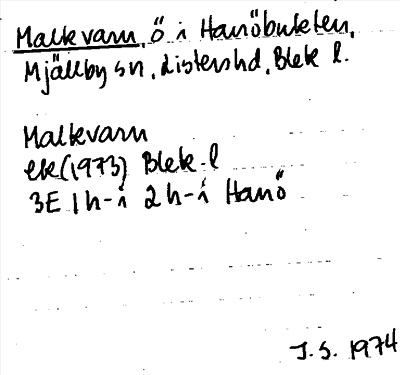 Malkvarn, ö i Hanöbukten,
Mjällby sn, Listers hd, Blek l.
Malkvarn
ek (1973) Blek. l
3E 1h-i 2h-i Hanö
J.S. 1974